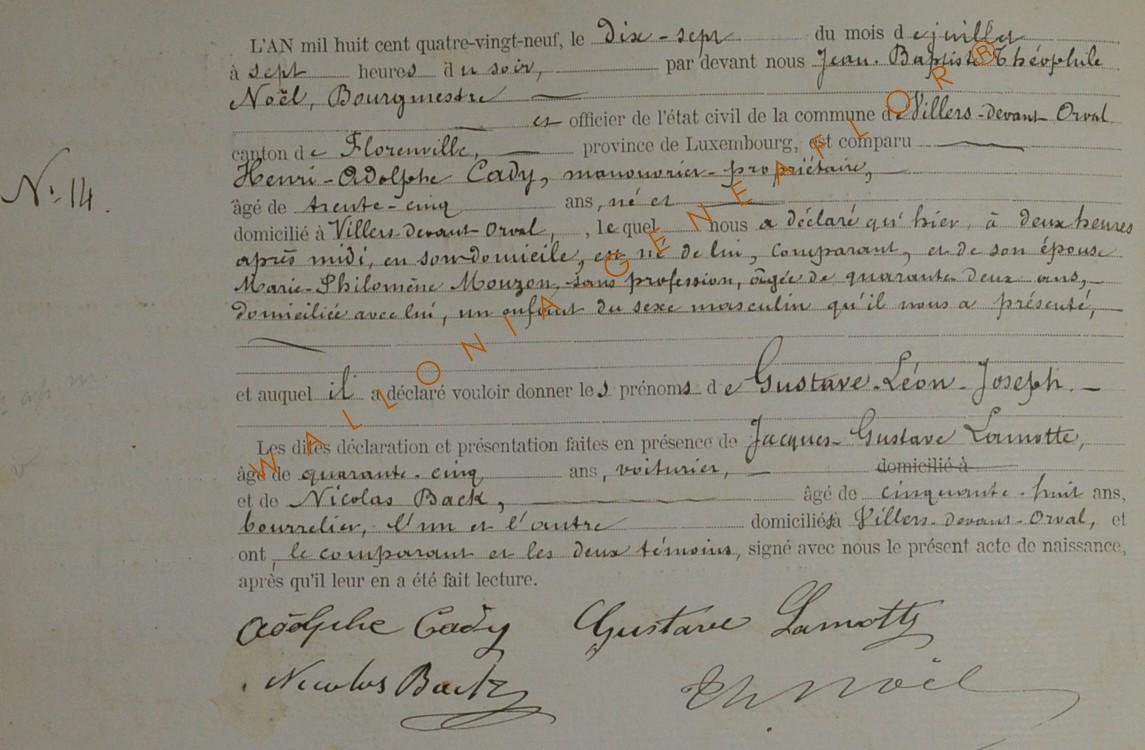 L'AN mil huit cent quatre-vingt-neuf, le Dix-sept du mois de juillet
à sept heures du soir, par devant nous Jean-Baptiste Théophile
Noël, Bourgmestre
et officier de l'état civil de la commune de Villers-devant-Orval
canton de Florenville, province de Luxembourg, est comparu
Henri-Adolphe Cady, manouvrier-propriétaire,
N° 14.
âgé de trente-cinq ans, né et
domicilié à Villers-devant-Orval, , lequel nous a déclaré qu'hier, à deux heures
après midi, en son domicile, est né de lui, comparant, et de son épouse
Marie-Philomène Mouzon, sans profession, âgée de quarante deux ans,
domiciliée avec lui, un enfant du sexe masculin qu'il nous a présenté,
et auquel il a déclaré vouloir donner les prénoms de Gustave-Léon-Joseph.
Les dites déclaration et présentation faites en présence de Jacques-Gustave Lamotte,
âgé de quarante-cinq ans, voiturier, domicilié à
et de Nicolas Back, âgé de cinquante-huit ans,
bourrelier, l'un et l'autre domiciliés à Villers-devant-Orval, et
ont, le comparant et les deux témoins, signé avec nous le présent acte de naissance,
après qu'il leur en a été fait lecture.
Adolphe Cady Gustave Lamotte
Nicolas Back Th. Noël
WALLONIA GENEAFLOR®